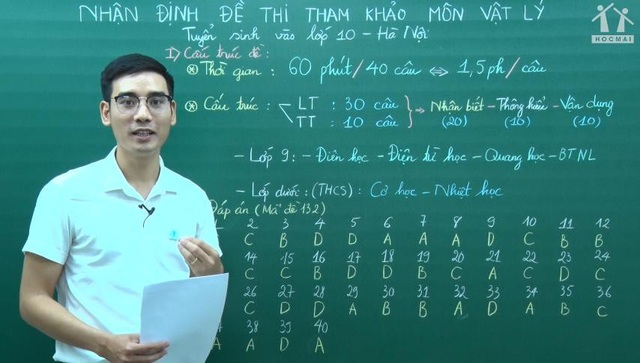 NHẬN ĐỊNH ĐỀ THI THAM KHẢO MÔN VẬT LÝ
HOCMAI
Tuyển sinh vào lớp 10 - Hà Nội
I) Cấu trúc đề:
⊛ Thời gian: 60 phút/40 câu ⇔ 1,5ph/câu
⊛ Cấu trúc: LT : 30 câu
TT : 10 câu
→ Nhận biết - Thông hiểu - Vận dụng
(20) (10) (10)
- Lớp 9: - Điện học - Điện từ học - Quang học - BTNL
- Lớp dưới: (THCS): Cơ học - Nhiệt học
Đáp án (Mã đề 132)
2 3 4 5 6 7 8 9 10 11 12
C B D D A A A D C B B
14 15 16 17 18 19 20 21 22 23 24
C C B D D B C A C D C
26 27 28 29 30 31 32 33 34 35 36
C D D A B B A D A B C
38 39 40
A A D A